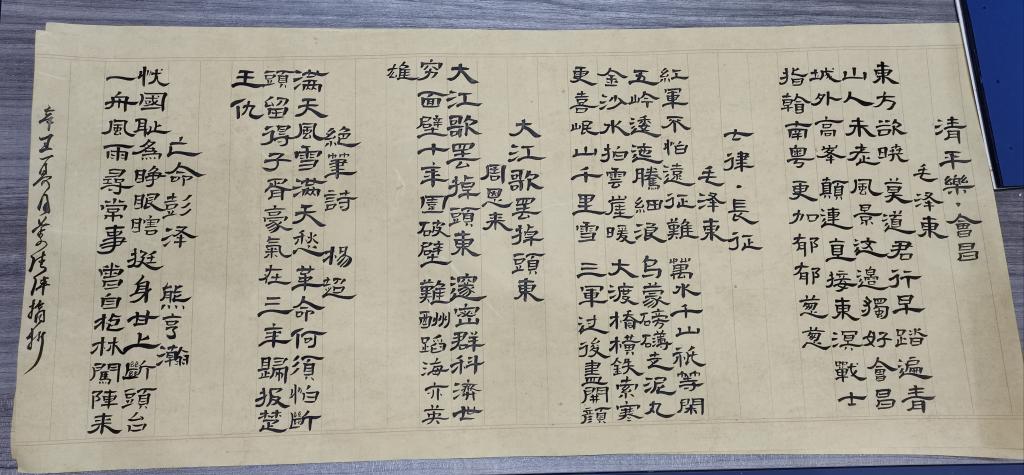 清平樂·會昌
毛泽東
東方欲曉 莫道君行早 踏遍青
山人未走 風景这邊獨好 會昌
城外高峯 顛連直接東溟 戰士
指翰南粤 更加郁郁葱葱
七律·長征
毛泽東
紅軍不怕遠征難 萬水千山祇等閑
五岭逶迤騰細浪 乌蒙磅礴走泥丸
金沙水拍雲崖暖 大渡橋橫鉄索寒
更喜岷山千里雪 三軍过後盡開顔
大江歌罢掉頭東
周恩来
大江歌罢掉頭東 邃密群科濟世
穷面壁十年圖破壁 難酬蹈海亦英
雄
絶筆詩 楊超
滿天風雪滿天愁 革命何須怕斷
頭留得子胥豪氣在 三年歸报楚
王仇
亡命彭泽 熊亨瀚
忧國耻為睁眼瞎 挺身甘上斷頭台
一舟風雨尋常事 曾自枪林闖陣来
辛丑